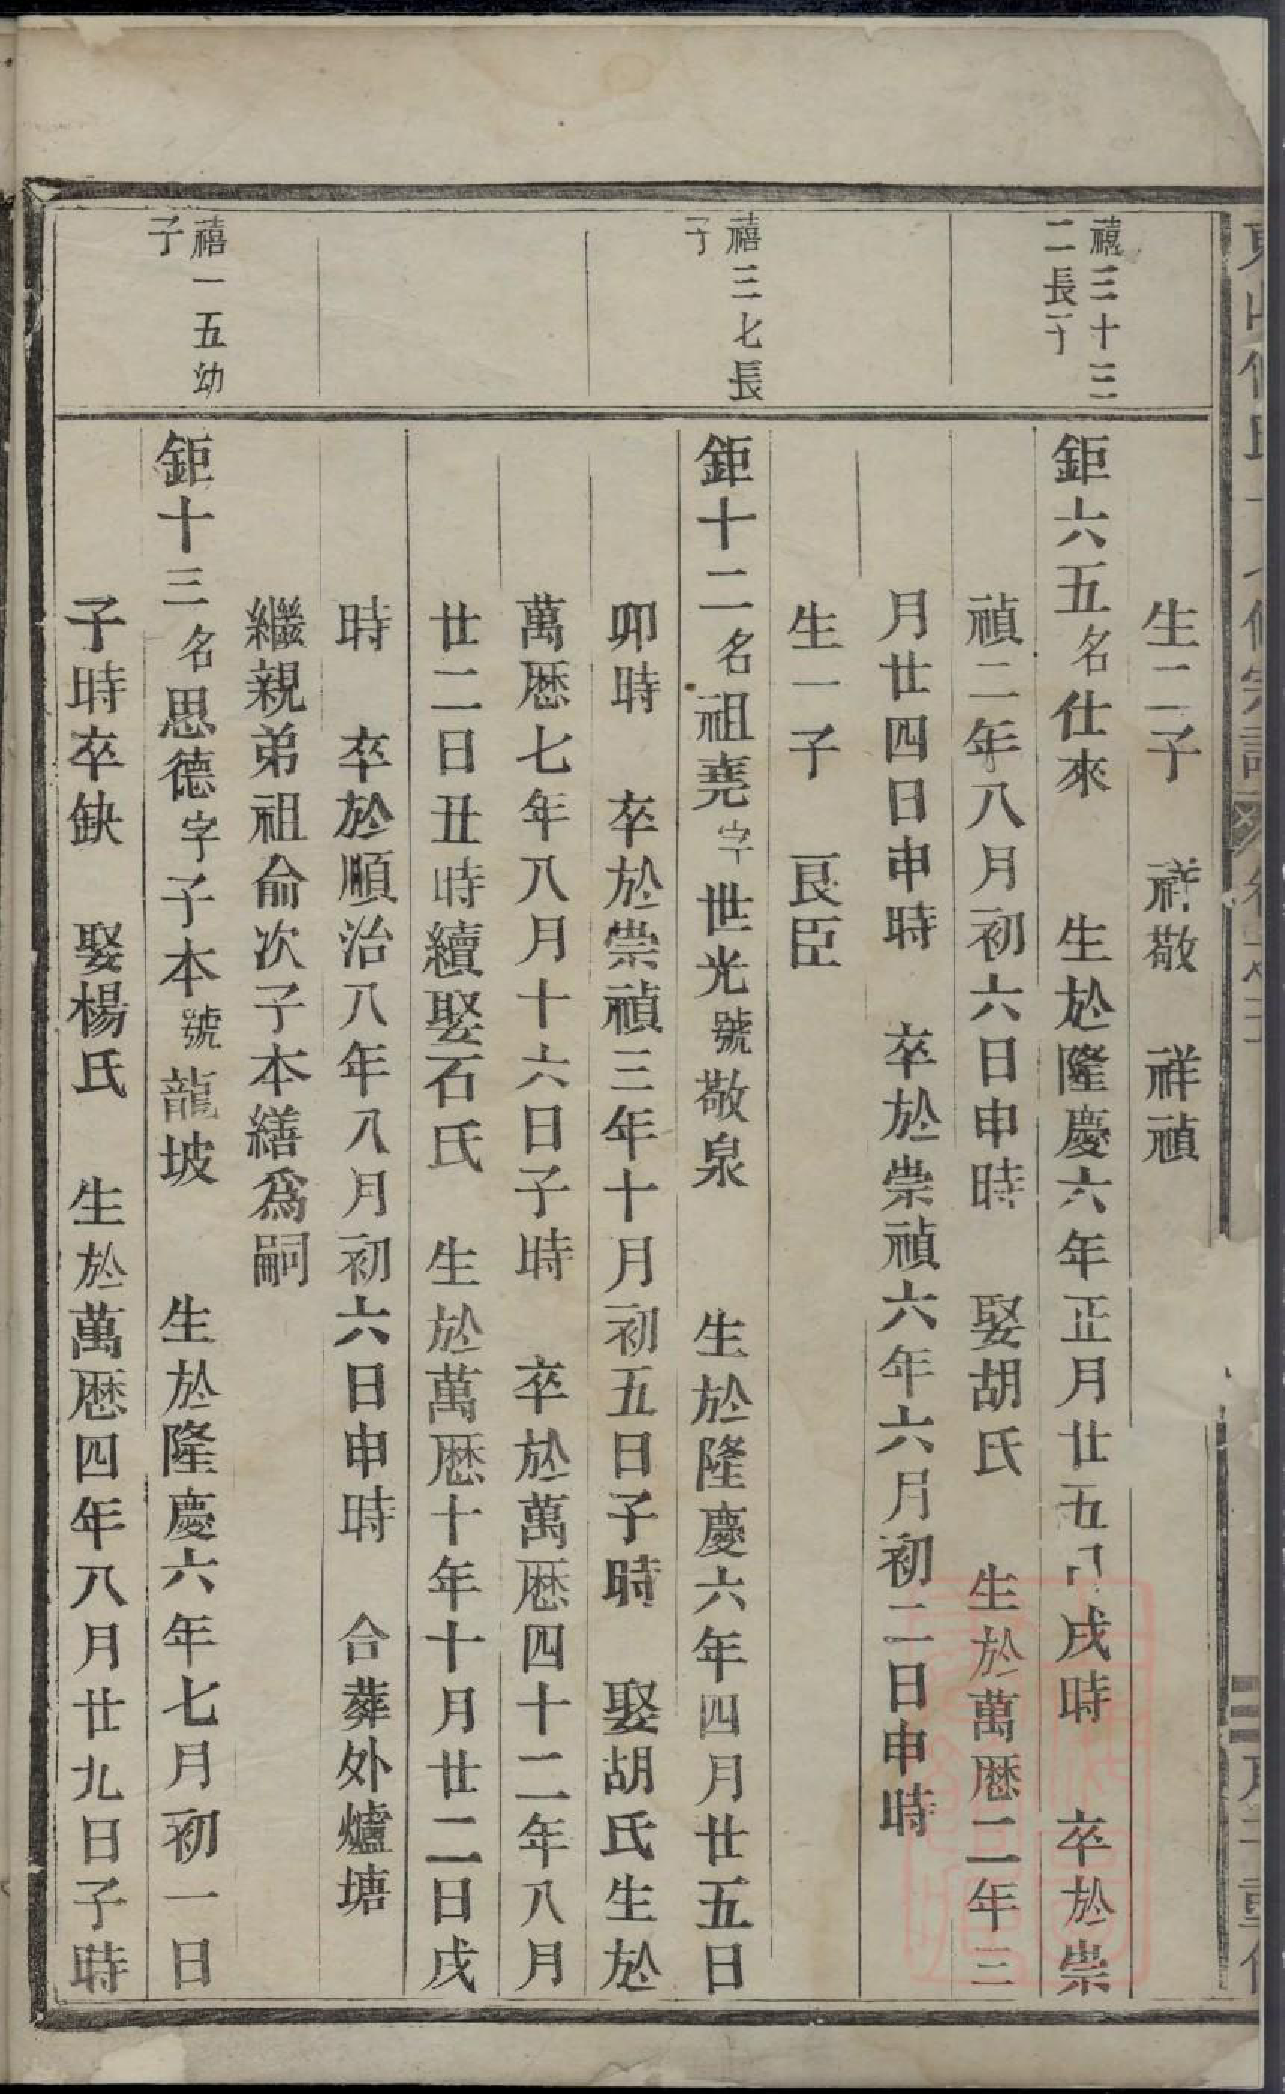 禧三十三
二長子
禧三七長
子
禧一五幼
子
生二子　祥敬　祥禎
鉅六五名仕來　生於隆慶六年正月廿五日戌時　卒於崇
禎二年八月初六日申時　娶胡氏　生於萬曆二年三
月廿四日申時　卒於崇禎六年六月初二日申時
生一子　良臣
鉅十二名祖堯字世光號敬泉　生於隆慶六年四月廿五日
卯時　卒於崇禎三年十月初五日子時　娶胡氏生於
萬曆七年八月十六日子時　卒於萬曆四十二年八月
廿二日丑時續娶石氏　生於萬曆十年十月廿二日戌
時　卒於順治八年八月初六日申時　合葬外爐塘
繼親弟祖俞次子本繕爲嗣
鉅十三名思德字子本號龍坡　生於隆慶六年七月初一日
子時卒缺　娶楊氏　生於萬曆四年八月廿九日子時